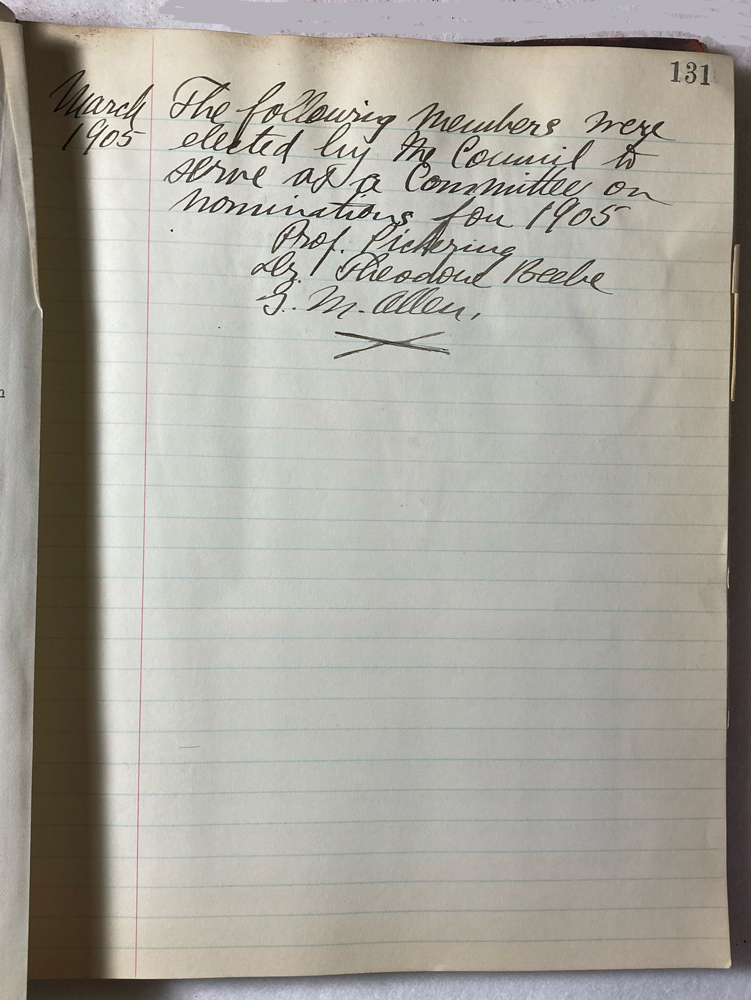 131
March
1905
The following members were
elected by the Council to
serve as a Committee on
nominations for 1905
Prof. Pickering
Dr. Theodore Beebe
G. M. Allen.
n